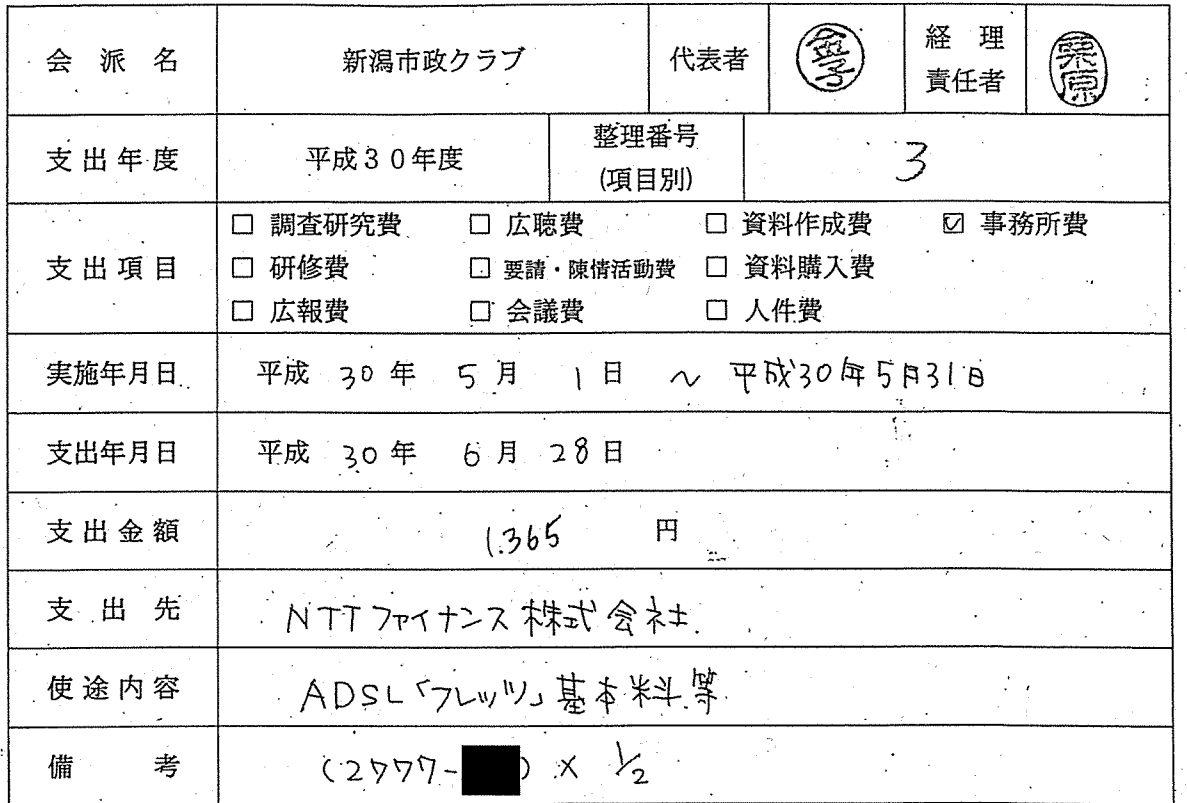 会派名 新潟市政クラブ 代表者 金子 経理責任者 栗原
支出年度 平成30年度 整理番号(項目別) 3
支出項目
□ 調査研究費 □ 広聴費 □ 資料作成費 ☑ 事務所費
□ 研修費 □ 要請・陳情活動費 □ 資料購入費
□ 広報費 □ 会議費 □ 人件費
実施年月日 平成 30年 5月 1日 ~ 平成30年5月31日
支出年月日 平成 30年 6月 28日
支出金額 1.365 円
支出先 NTTファイナンス株式会社.
使途内容 ADSL「フレッツ」基本料等
備考 (2777- ) × 1/2